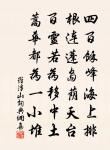 四百餘峰海上排
根連蓬島蔭天台
百靈若為移中土
蒿華都為一小堆
羅浮山 詞典網